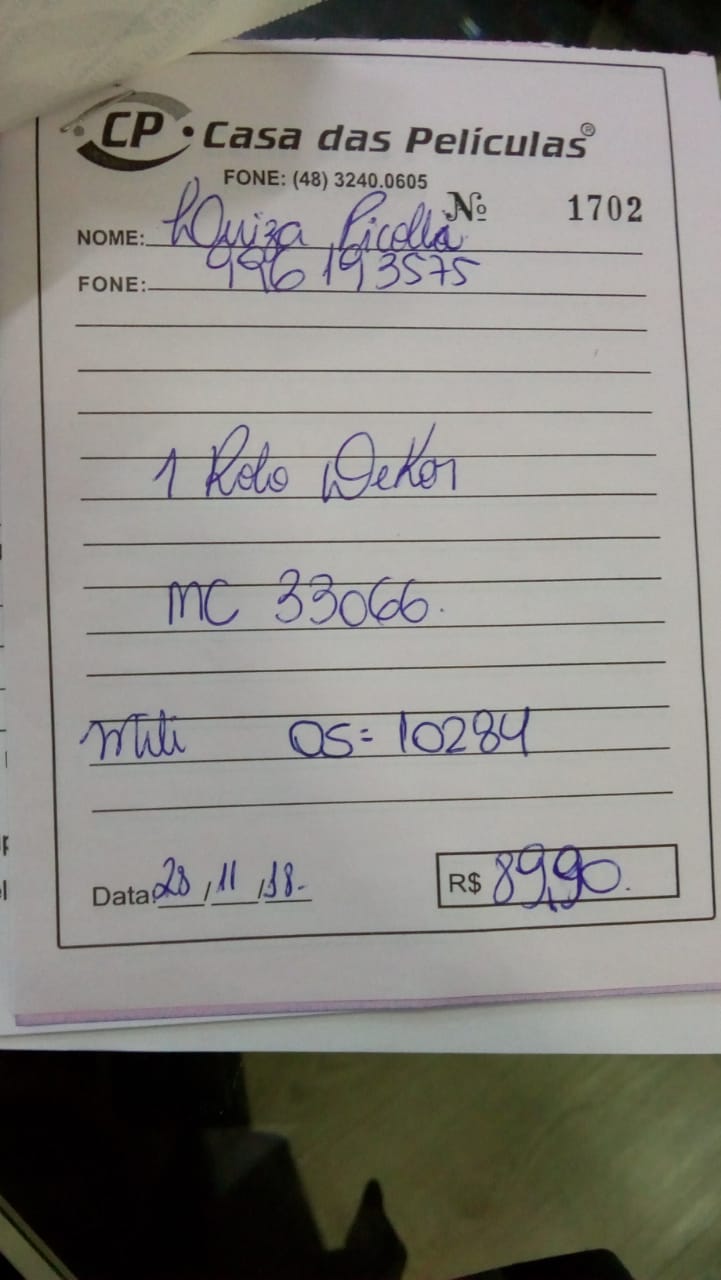 CP • Casa das Películas®
FONE: (48) 3240.0605
Nº 1702
NOME: Luiza Picolla
FONE: 996193575
1 Rolo Dekor
MC 33066.
OS= 10284
Data: 28/11/18.
R$ 89,90.